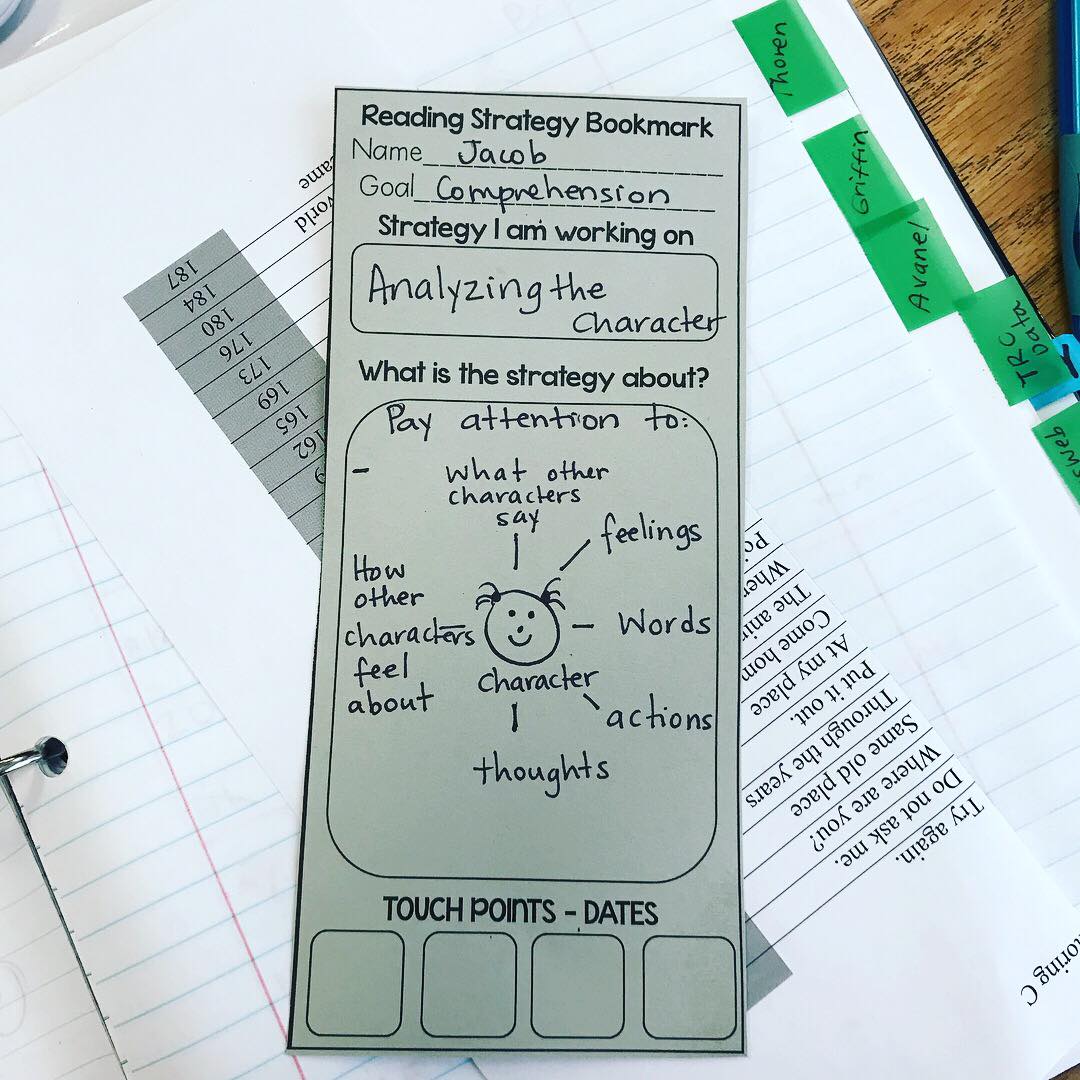 Reading Strategy Bookmark
Name Jacob
Goal Comprehension
Strategy I am working on
Analyzing the
Character
What is the strategy about?
Pay attention to:
- What other
characters
say
feelings
How
other
characters
feel
about
Words
character
actions
thoughts
TOUCH POINTS - DATES
Thoren
Griffin
Avanel
TRC
Data
187
184
180
176
173
169
165
162
9
ame
world
Try again.
Do not ask me.
Where are you?
Same old place
Through the years
Put it out.
At my place
Come hom
The anim
When
Po
toring C